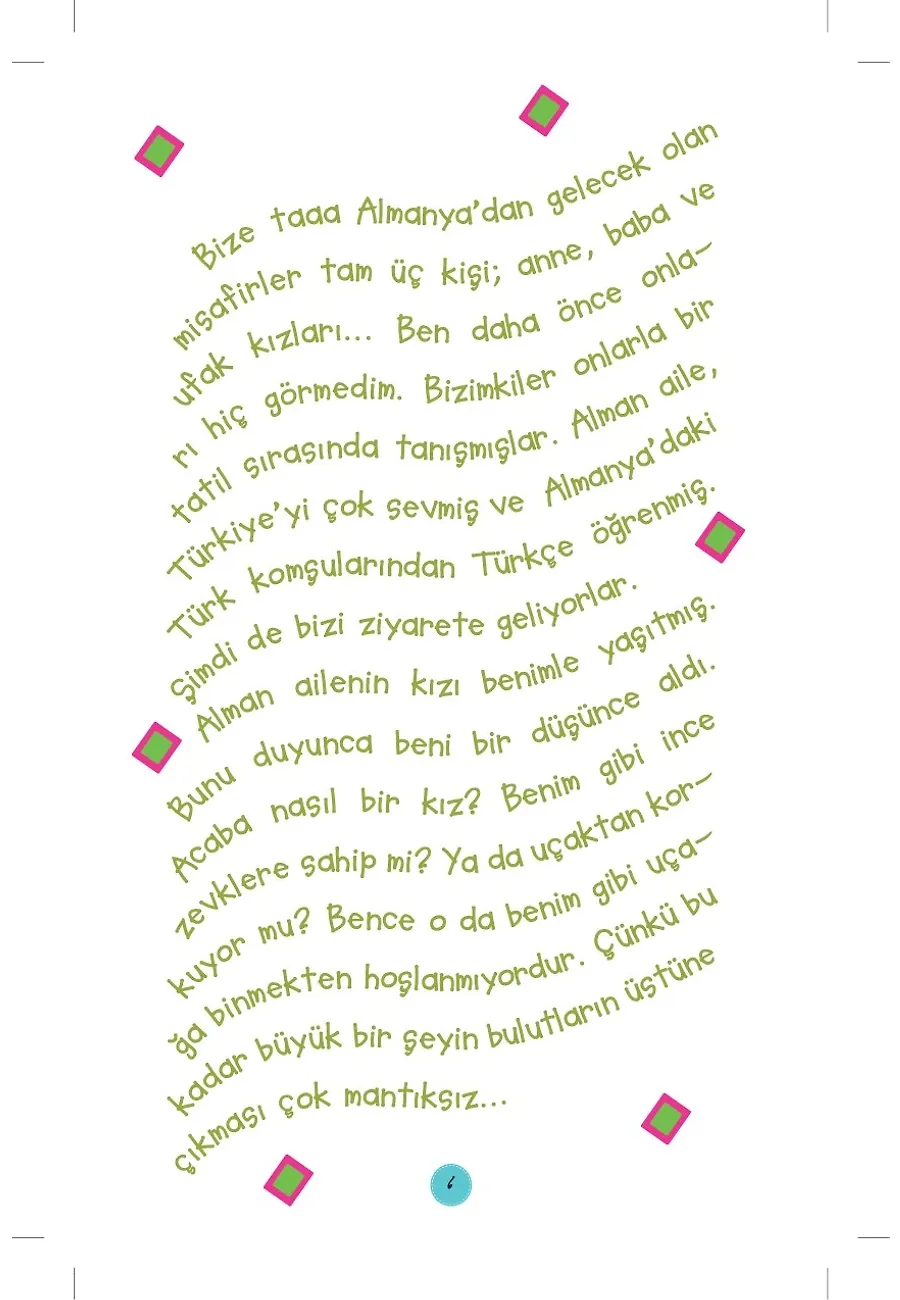 Bize taaa Almanya'dan gelecek olan
misafirler tam üç kişi; anne, baba ve
ufak kızları... Ben daha önce onla-
rı hiç görmedim. Bizimkiler onlarla bir
tatil sırasında tanışmışlar. Alman aile,
Türkiye'yi çok sevmiş ve Almanya'daki
Türk komşularından Türkçe öğrenmiş.
Şimdi de bizi ziyarete geliyorlar.
Alman ailenin kızı benimle yaşıtmış.
Bunu duyunca beni bir düşünce aldı.
Acaba nasıl bir kız? Benim gibi ince
zevklere sahip mi? Ya da uçaktan kor-
kuyor mu? Bence o da benim gibi uça-
ğa binmekten hoşlanmıyordur. Çünkü bu
kadar büyük bir şeyin bulutların üstüne
çıkması çok mantıksız...
6